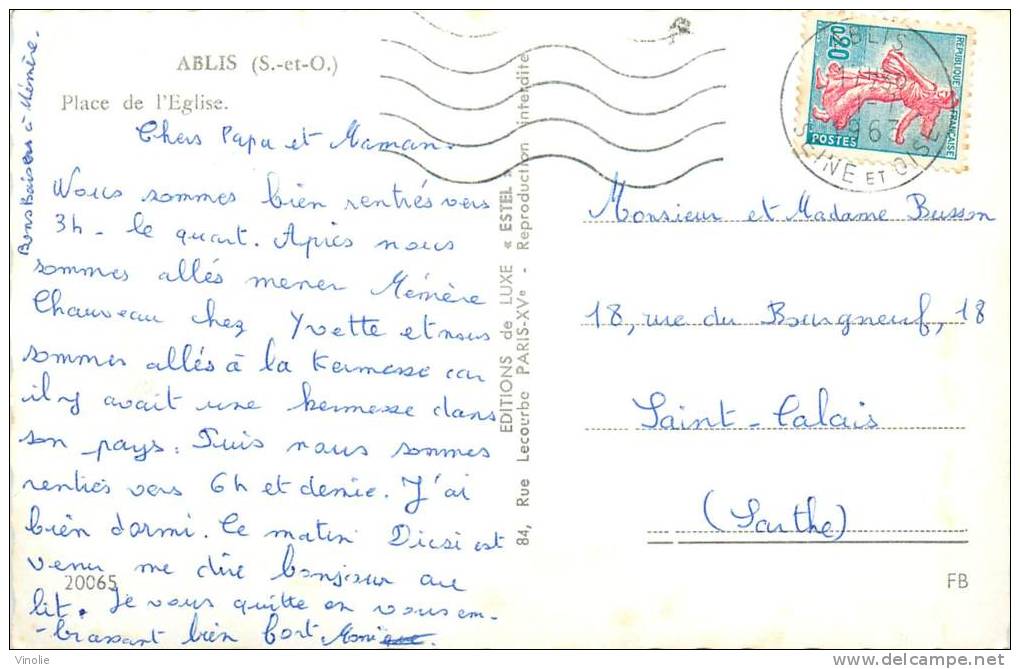 ABLIS (S.-et-O.)
Place de l'Eglise.
Chers Papa et Maman.
Nous sommes bien rentrés vers
3h - le quart. Après nous
sommes allés mener Mémère
Chauveau chez Yvette et nous
sommes allés à la Kermesse car
il y avait une kermesse dans
son pays. Puis nous sommes
rentrés vers 6h et demie. J'ai
bien dormi. Ce matin est
venu me dire bonjour au
lit. Je vous quitte en vous em-
-brassant bien fort
Bons Baisers à Mémère.
20065
EDITIONS de LUXE « ESTEL »
84, Rue Lecourbe PARIS-XVe - Reproduction interdite
REPUBLIQUE FRANÇAISE
0,20
POSTES
ABLIS
1963
SEINE ET OISE
Monsieur et Madame Busson
18, rue du Bourgneuf, 18
Saint-Calais
(Sarthe)
FB
Vinolie
http://www.delcampe.net